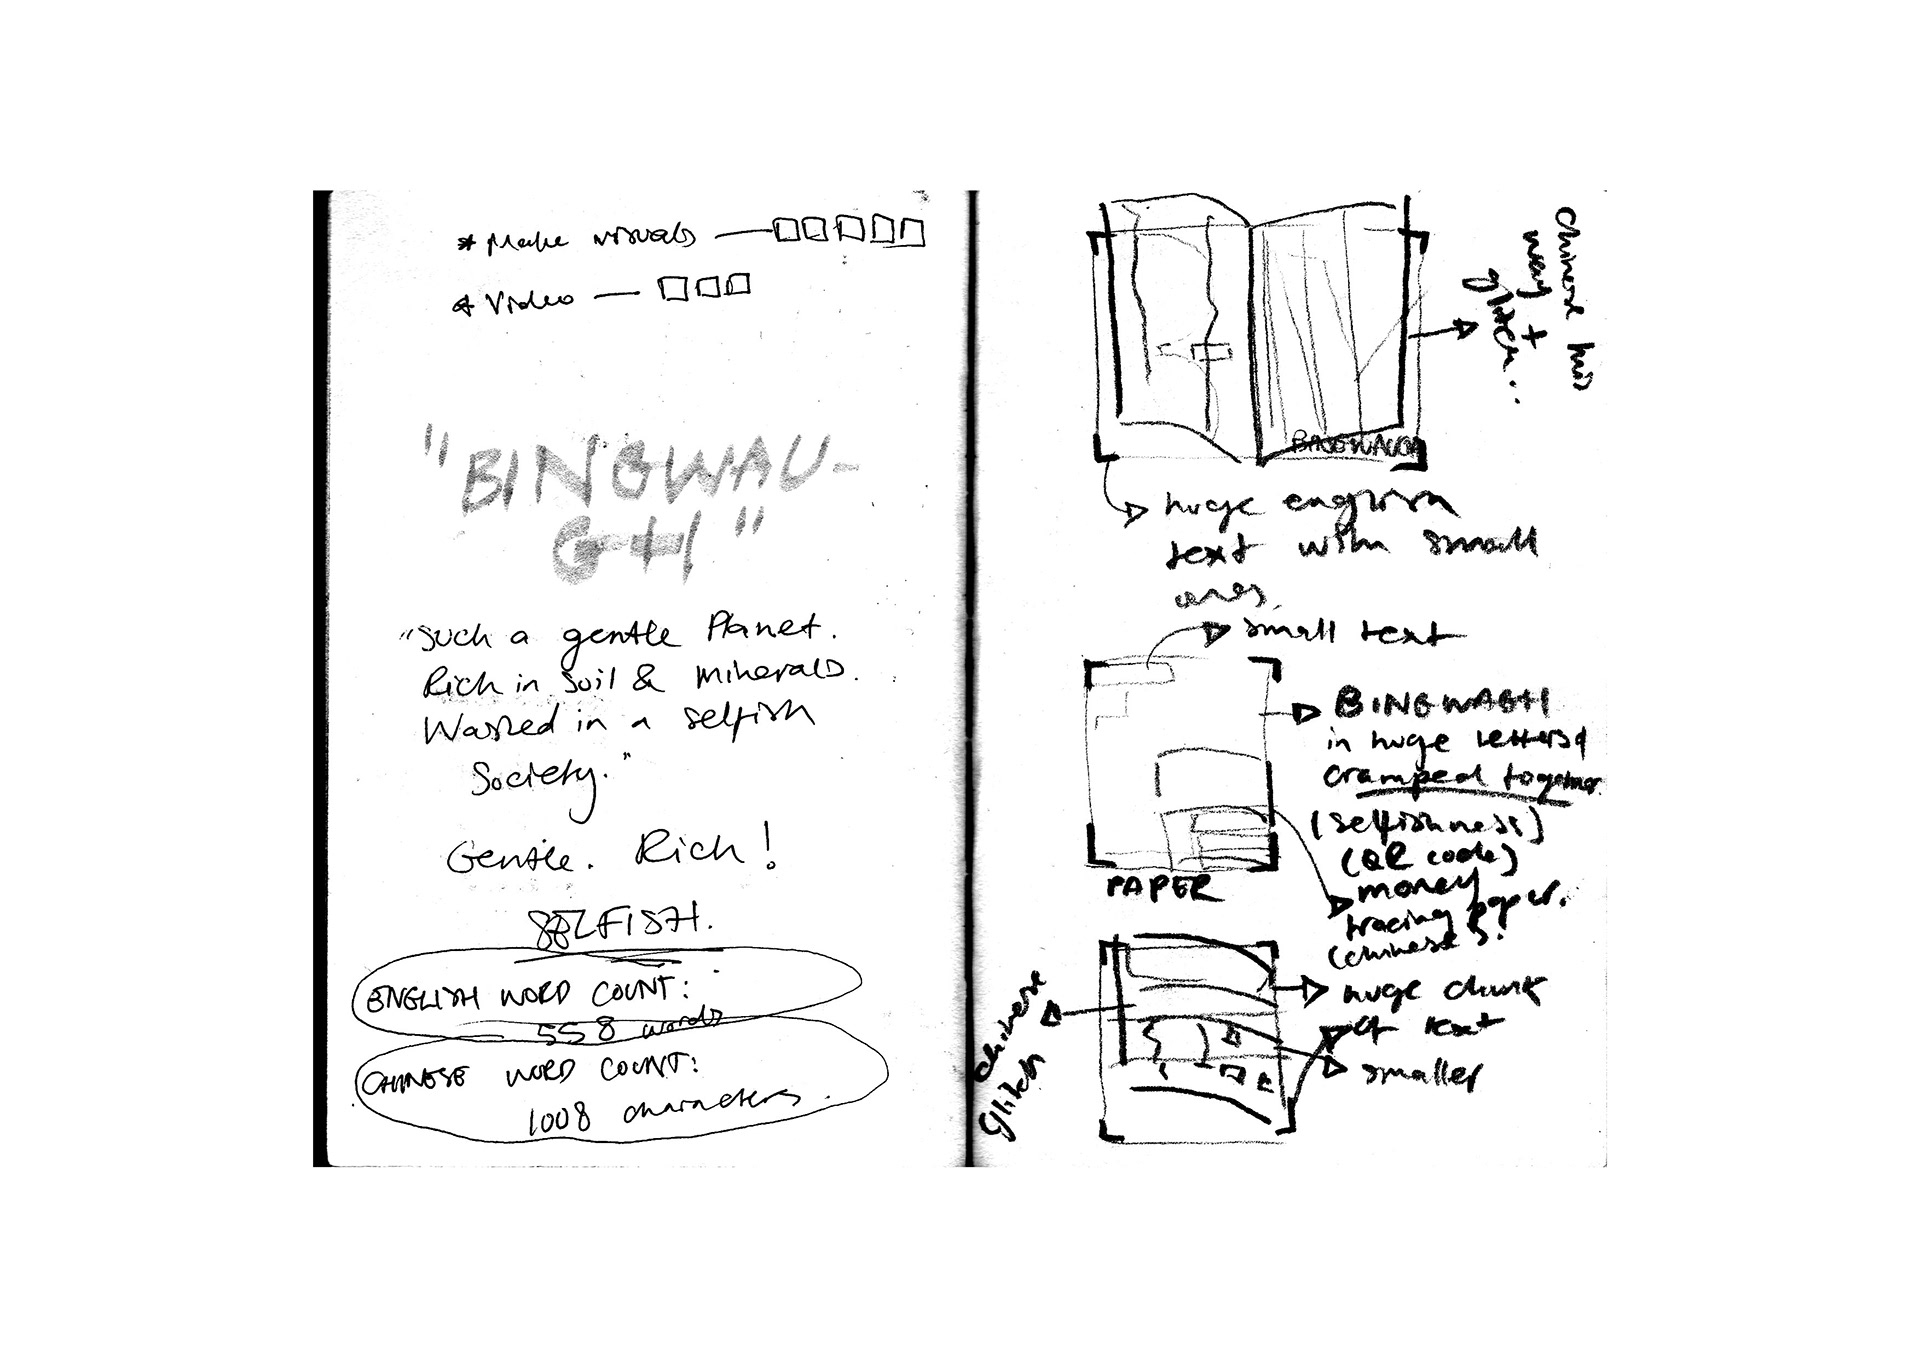 * Make visuals —
* Video —
"BINGWAU-
GH"
"Such a gentle Planet.
Rich in Soil & Minerals.
Wasted in a selfish
Society."
Gentle. Rich!
SELFISH.
ENGLISH WORD COUNT:
558 words
CHINESE WORD COUNT:
1008 characters.
Chinese
way +
glitch..
huge english
text with small
ones.
small text
BINGWAGH
in huge letters
cramped together
(selfishness)
(QR code)
money
tracing paper.
(chinese).
PAPER
huge chunk
of text
smaller
chinese
glitch